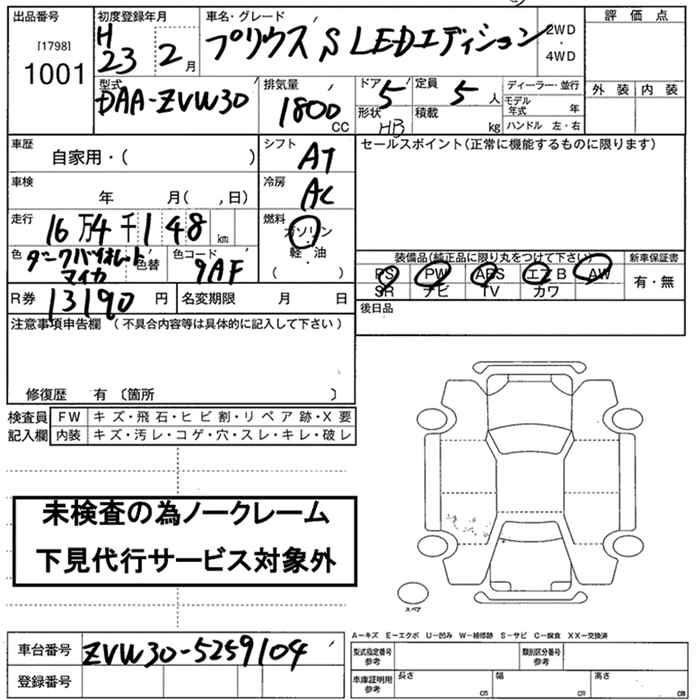 出品番号 初度登録年月 車名・グレード 評価点
[1798]
1001
H
23 2月
プリウス S LEDエディション
2WD
・
4WD
型式 排気量 ドア 定員 ディーラー・並行 外装 内装
DAA-ZVW30 1800 CC 5 5人
モデル年式 年
形状 HB 積載 kg ハンドル 左・右
車歴 シフト セールスポイント(正常に機能するものに限ります)
自家用・( ) AT
車検 冷房
年 月( ,日) AC
走行 燃料
16万4千148km ガソリン
軽・油
( )
色 ダークバイオレットマイカ 色替 色コード 9AF
装備品(純正品に限り丸をつけて下さい) 新車保証書
PS PW ABS エアB AW 有・無
SR ナビ TV カワ
R券 13190円 名変期限 月 日 後日品
注意事項申告欄 (不具合内容等は具体的に記入して下さい)
修復歴 有 〔箇所 〕
検査員 FW キズ・飛石・ヒビ割・リペア跡・X要
記入欄 内装 キズ・汚レ・コゲ・穴・スレ・キレ・破レ
未検査の為ノークレーム
下見代行サービス対象外
スペア
A-キズ E-エクボ U-凹み W-補修跡 S-サビ C-腐食 XX-交換済
車台番号 ZVW30-5259104
型式指定番号 参考 類別区分番号 参考
登録番号
車庫証明用 参考 長さ cm 幅 cm 高さ cm